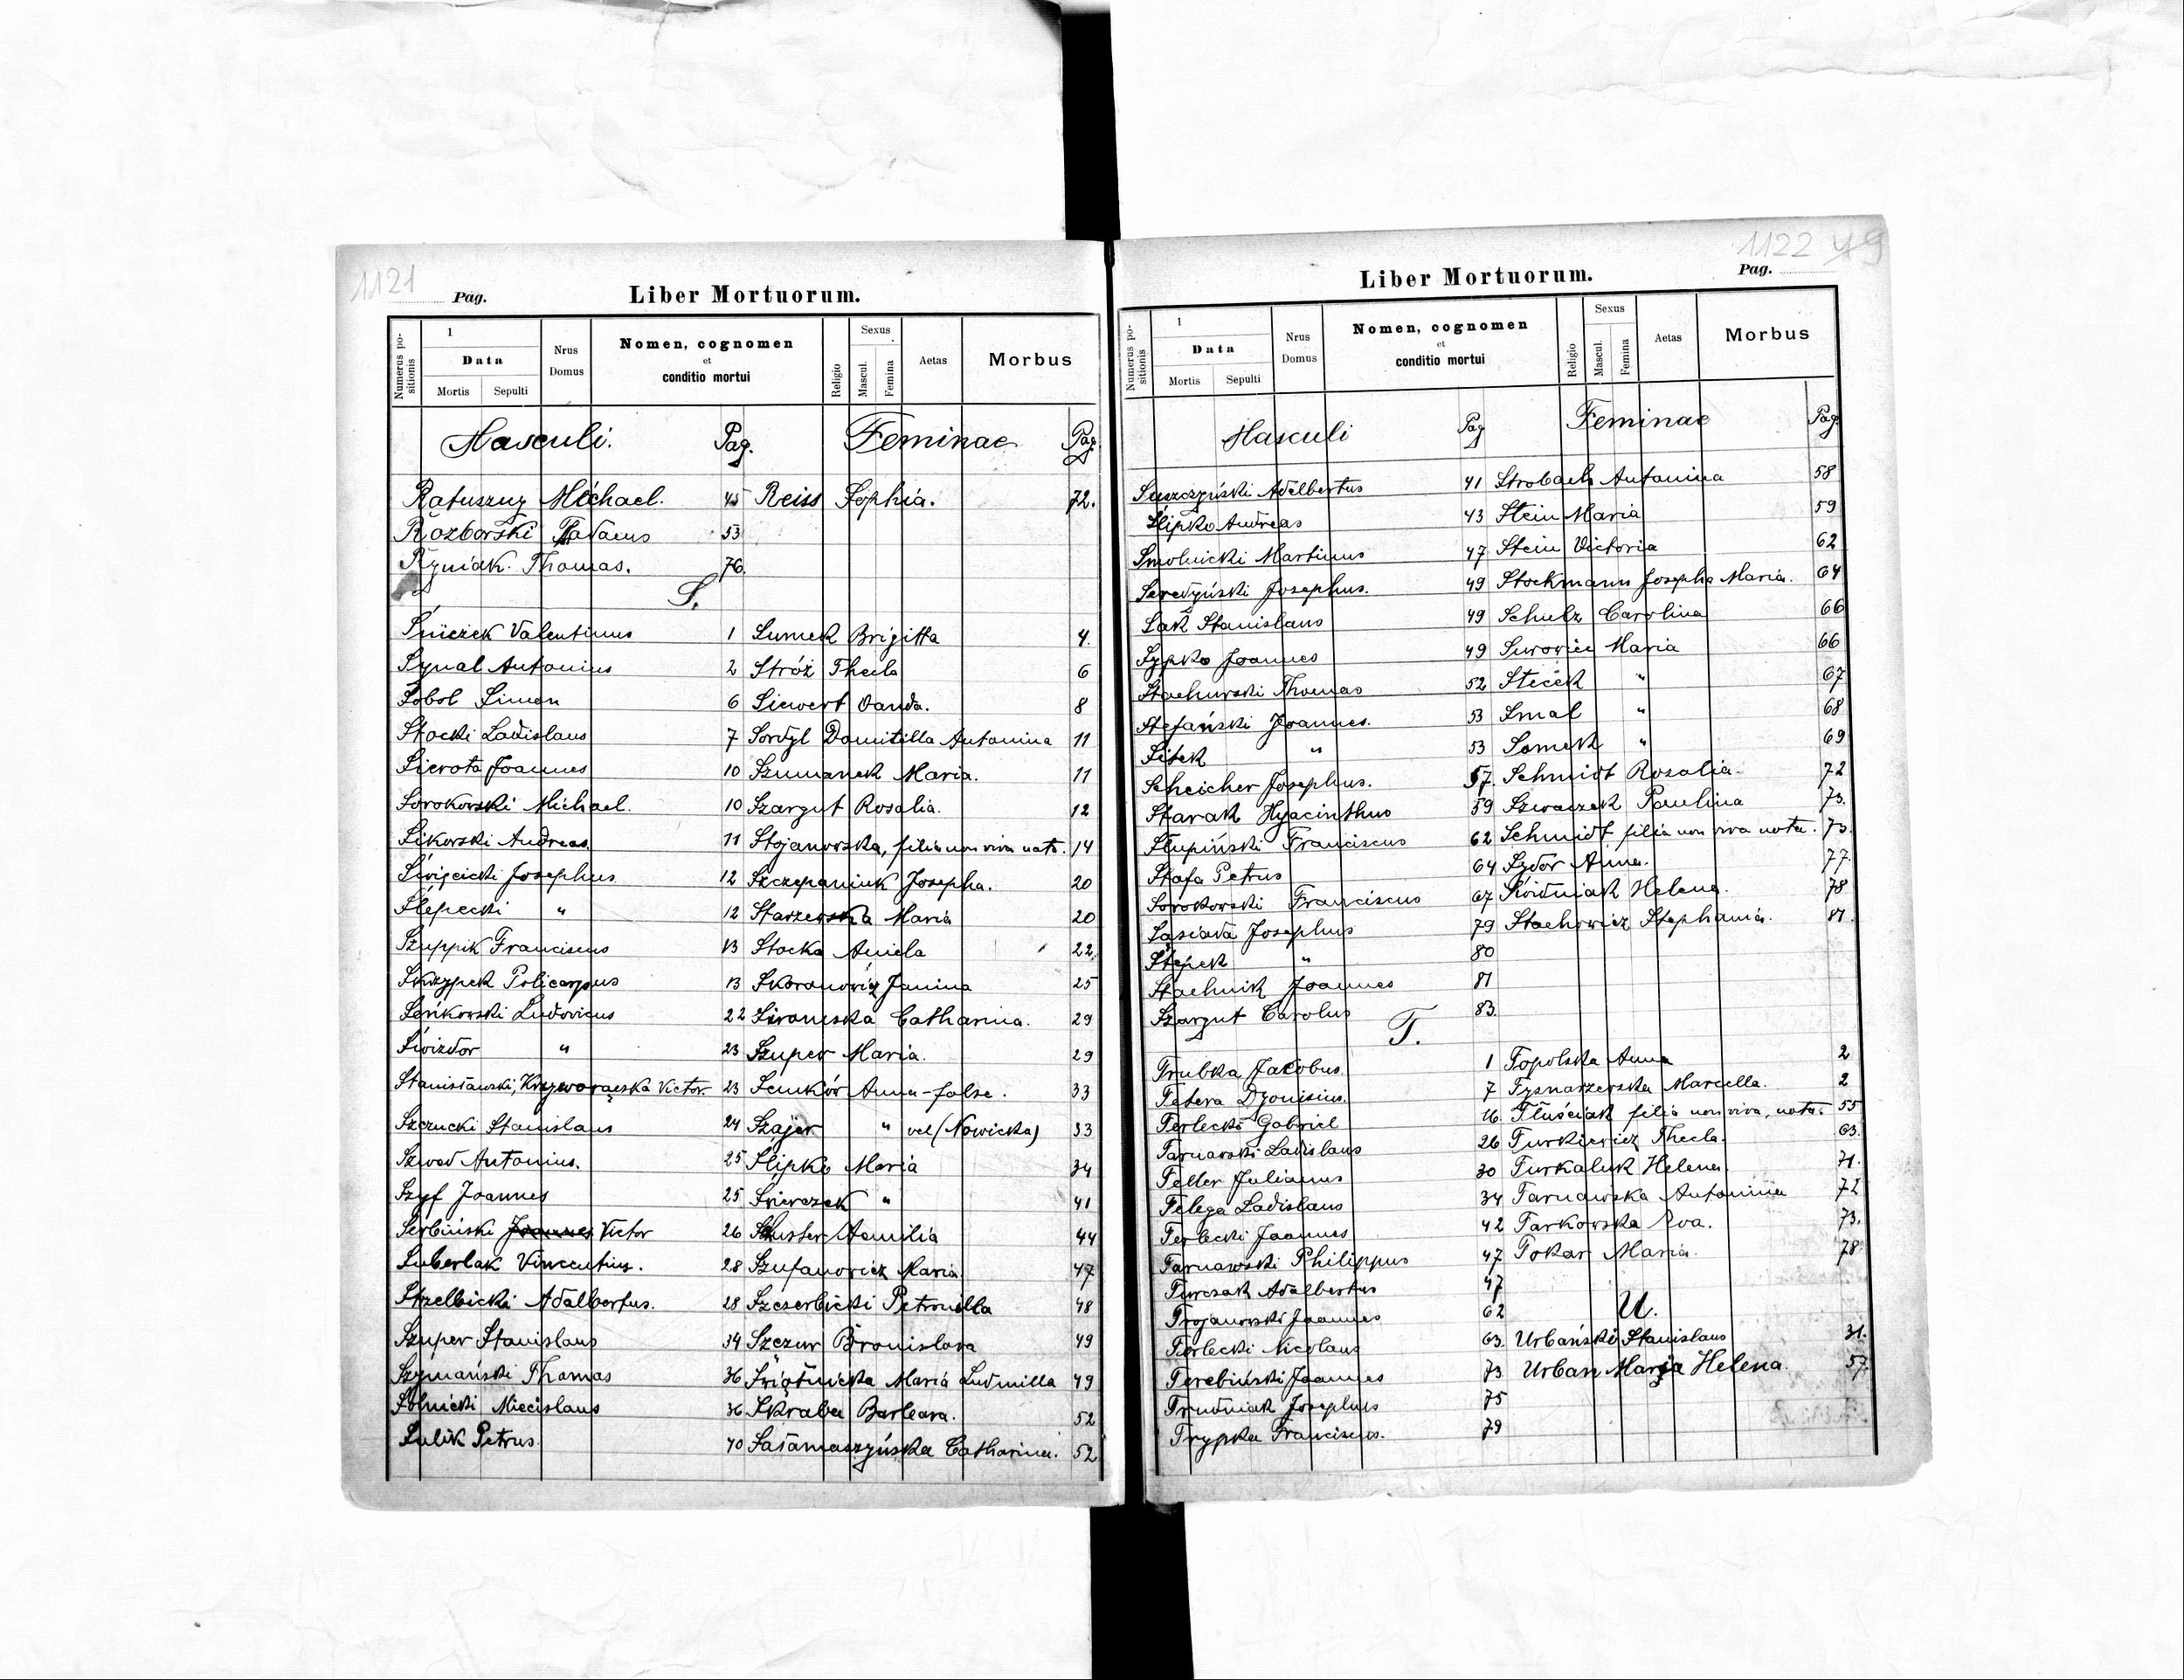 1121
Pag.
Liber Mortuorum.
Numerus positionis
1
Data
Mortis
Sepulti
Nrus Domus
Nomen, cognomen
et
conditio mortui
Religio
Sexus
Mascul.
Femina
Aetas
Morbus
Masculi. Pag. Feminae Pag.
Ratuszny Michael. 45 Reiss Sophia. 72.
Rozborski Tadaeus 53
Ryniak Thomas. 76.
S.
Śnieżek Valentinus 1 Sumek Brigitta 4.
Synal Antonius 2 Stróż Thecla 6
Sobol Simon 6 Siewert Vanda. 8
Stocki Ladislaus 7 Sordyl Domitilla Antonina 11
Sierota Joannes 10 Szumanek Maria. 11
Sorokowski Michael. 10 Szargut Rosalia. 12
Sikorski Andreas. 11 Stojanowska, filia non viva nata. 14
Święcicki Josephus 12 Szczepaniuk Josepha. 20
Ślepecki " 12 Starzewska Maria 20
Szuppik Franciscus 13 Stocka Aniela 22.
Skrzypek Policarpus 13 Skoronowicz Janina 25
Seńkowski Ludovicus 22 Siromska Catharina. 29
Świzdor " 23 Szuper Maria. 29
Stanisławski, Victor. 23 Seńków Anna-false. 33
Szczucki Stanislaus 24 Szajer " vel (Nowicka) 33
Szwed Antonius. 25 Ślipko Maria 34
Szyf Joannes 25 Świerczek " 41
Serbiński Joannes Victor 26 Shuster Aemilia 44
Suberlak Vincentius. 28 Szufanowicz Maria. 47
Strzelbicki Adalbertus. 28 Szczerbicki Petronilla 48
Szuper Stanislaus 34 Szczur Bronislava 49
Szymański Thomas 36 Świątnicka Maria Ludmilla 49
Solnicki Miecislaus 36 Skraba Barbara. 52
Sulik Petrus. 40 Sałamaszyńska Catharina. 52
1122 49
Pag.
Liber Mortuorum.
Numerus positionis
1
Data
Mortis
Sepulti
Nrus Domus
Nomen, cognomen
et
conditio mortui
Religio
Sexus
Mascul.
Femina
Aetas
Morbus
Masculi Pag Feminae Pag.
Suszczyński Adelbertus 41 Strobach Antonina 58
Ślipko Andreas 43 Stein Maria 59
Smolnicki Martinus 47 Stein Victoria 62
Seredyński Josephus. 49 Stockmann Josepha Maria. 64
Sak Stanislaus 49 Schulz Carolina 66
Sypko Joannes 49 Surowiec Maria 66
Stachurski Thomas 52 Stecek " 67
Stefański Joannes. 53 Smal " 68
Sitek " 53 Somek " 69
Scheicher Josephus. 57. Schmidt Rosalia. 72
Starak Hyacinthus 59 Szwaczek Paulina 73.
Słupiński Franciscus 62 Schmidt filia non viva nata. 73.
Stafa Petrus 64 Sydor Anna. 77.
Sorokowski Franciscus 67 Helena. 78
Sąsiada Josephus 79 Stachowicz Stephania. 81.
Stępek " 80
Stachnik Joannes 81
Szargut Carolus 83.
T.
Trubka Jacobus. 1 Topolska Anna 2
Tetera Dyonisius. 7 Tysnarzewska Marcella. 2
Terlecki Gabriel 16. Tłuściak filia non viva, nata. 55
Tarnawski Ladislaus 26 Turkiewicz Thecla. 63.
Teller Julianus 30 Turkaluk Helena. 71.
Telega Ladislaus 34 Tarnawska Antonina 72
Terlecki Joannes 42 Tarkowska Eva. 73.
Tarnawski Philippus 47 Tokar Maria. 78.
Turczak Adalbertus 47
Trojanowski Joannes 62 U.
Terlecki Nicolaus 63. Urbański Stanislaus 31.
Terebiński Joannes 73 Urban Marja Helena. 57.
Trudniak Josephus 75
Trypka Franciscus. 79